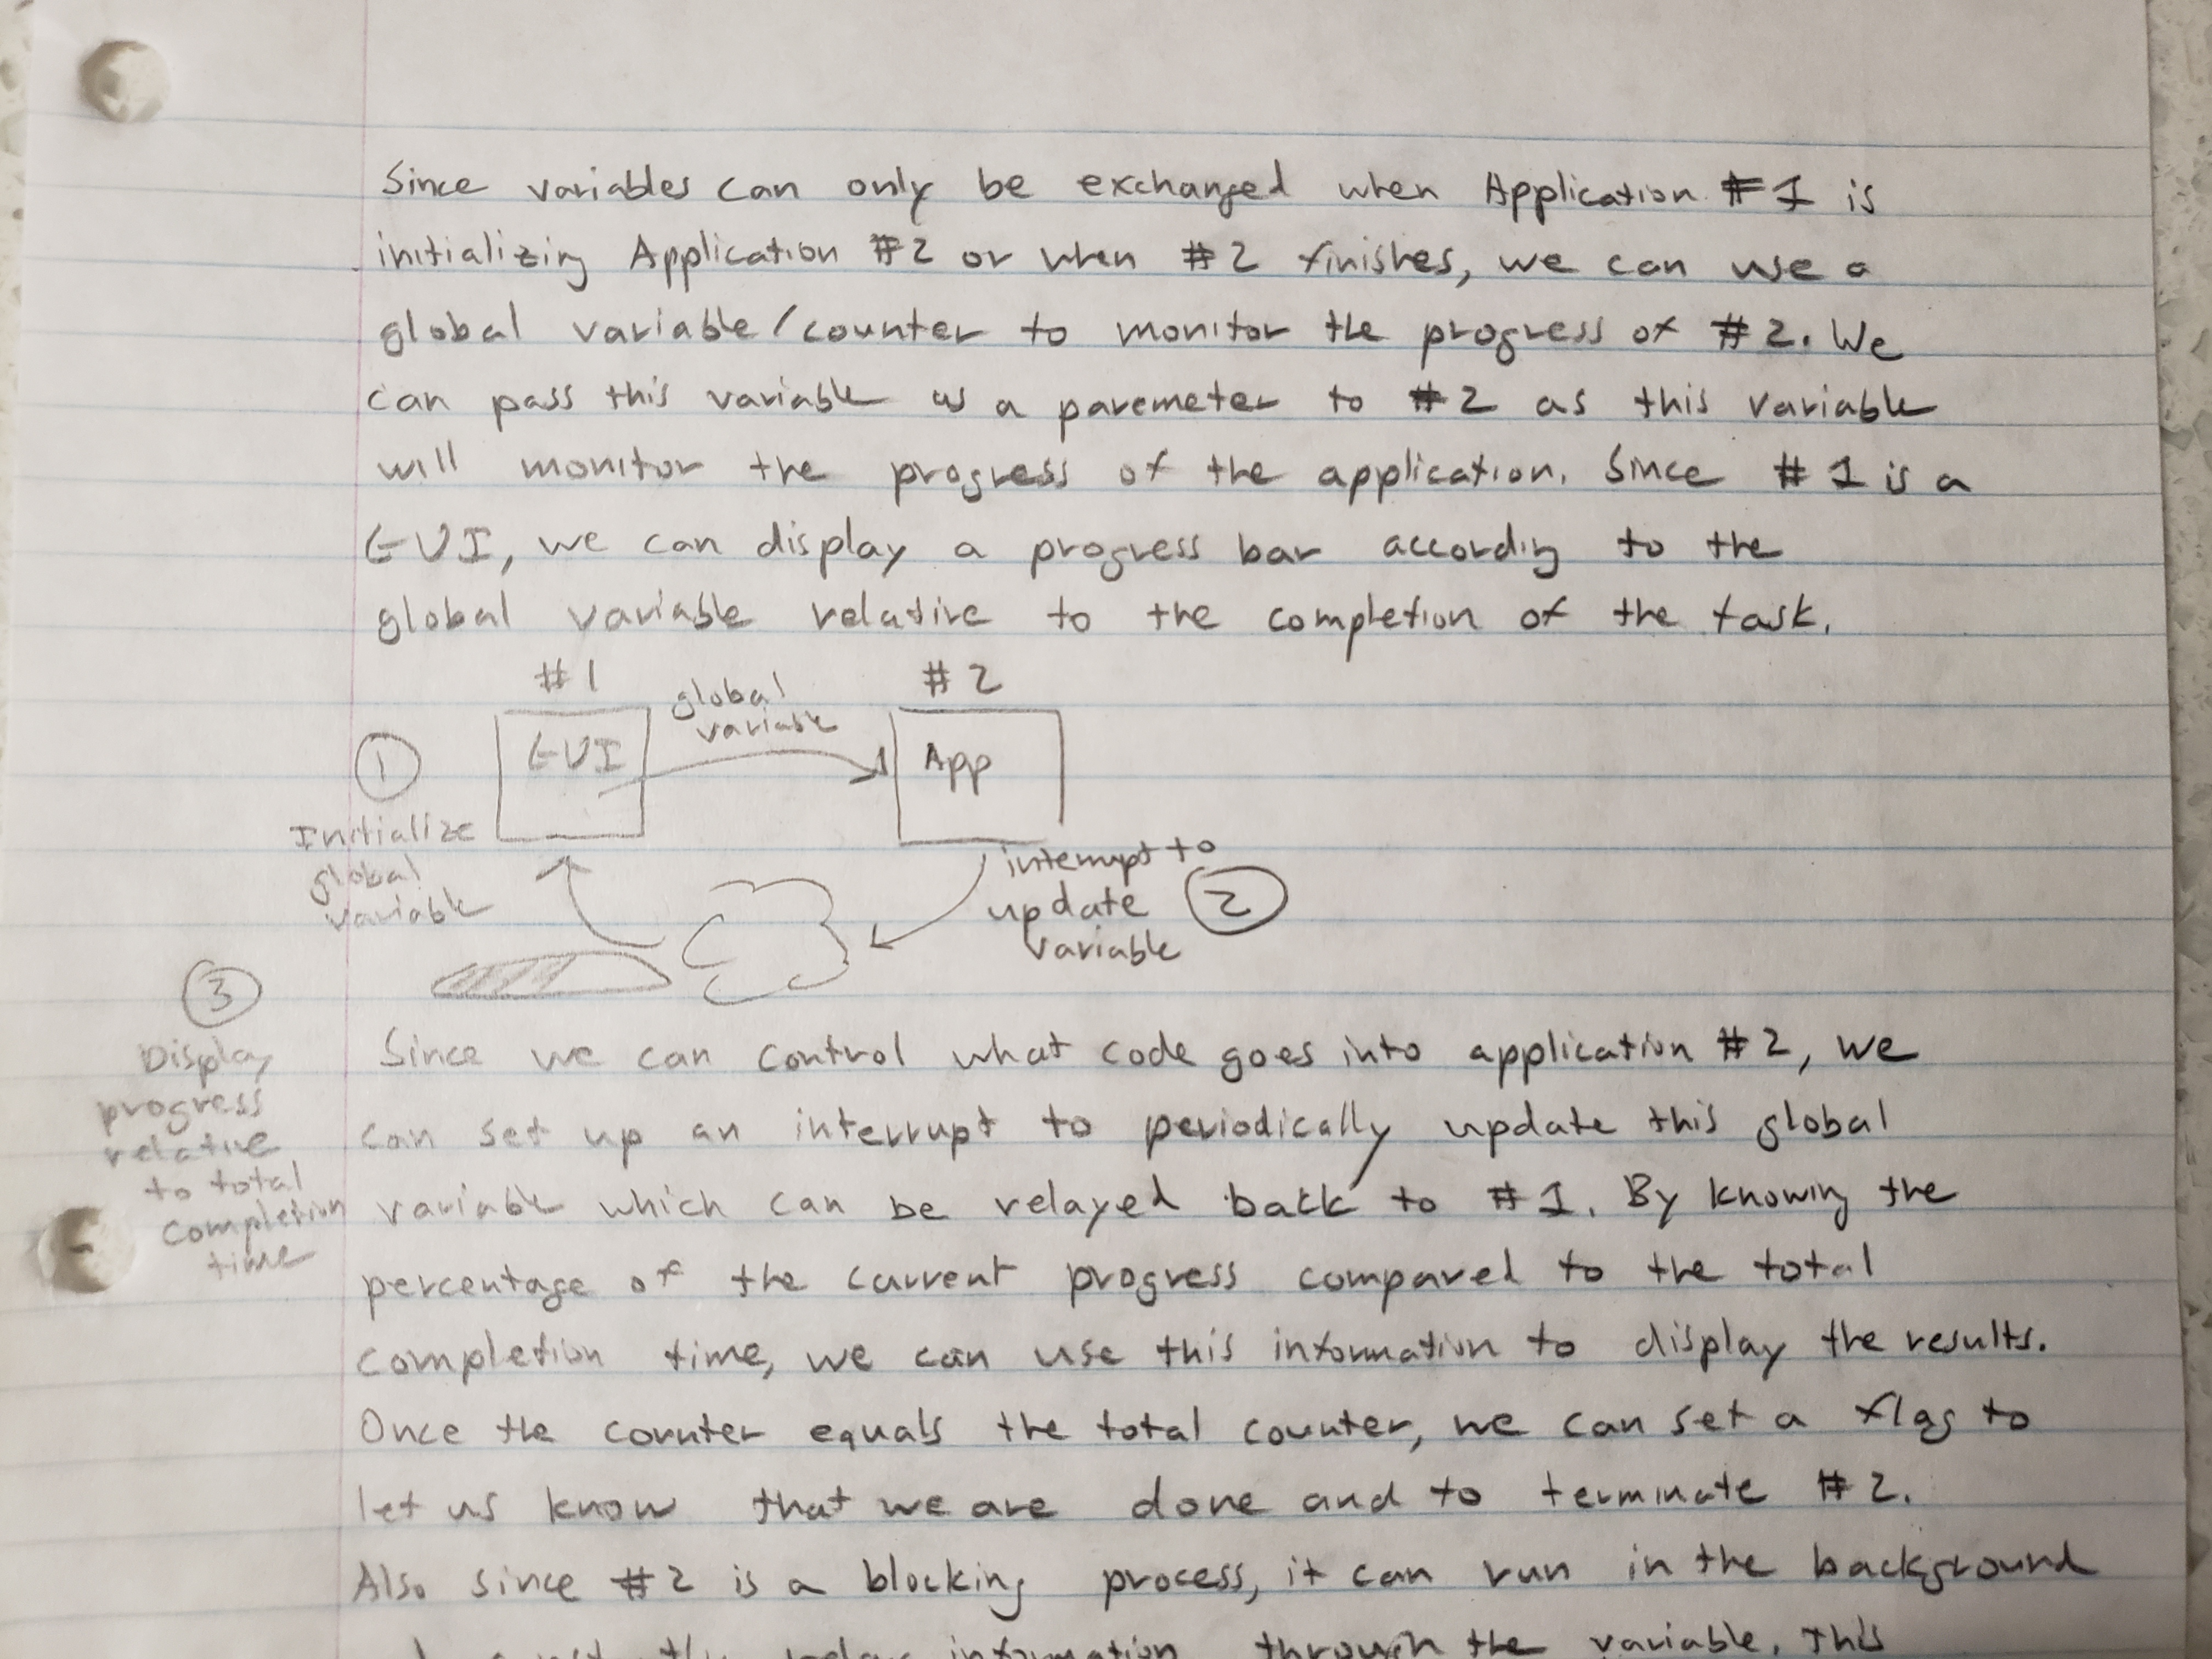 Since variables can only be exchanged when Application #1 is
initializing Application #2 or when #2 finishes, we can use a
global variable/counter to monitor the progress of #2. We
can pass this variable as a paremeter to #2 as this variable
will monitor the progress of the application. Since #1 is a
GUI, we can display a progress bar according to the
global variable relative to the completion of the task.
#1
global
variable
#2
1
GUI
App
Initialize
global
variable
interrupt to
update
variable
2
3
Display
progress
relative
to total
completion
time
Since we can control what code goes into application #2, we
can set up an interrupt to periodically update this global
variable which can be relayed back to #1. By knowing the
percentage of the current progress compared to the total
completion time, we can use this information to display the results.
Once the counter equals the total counter, we can set a flag to
let us know that we are done and to terminate #2.
Also since #2 is a blocking process, it can run in the background
information through the variable. This